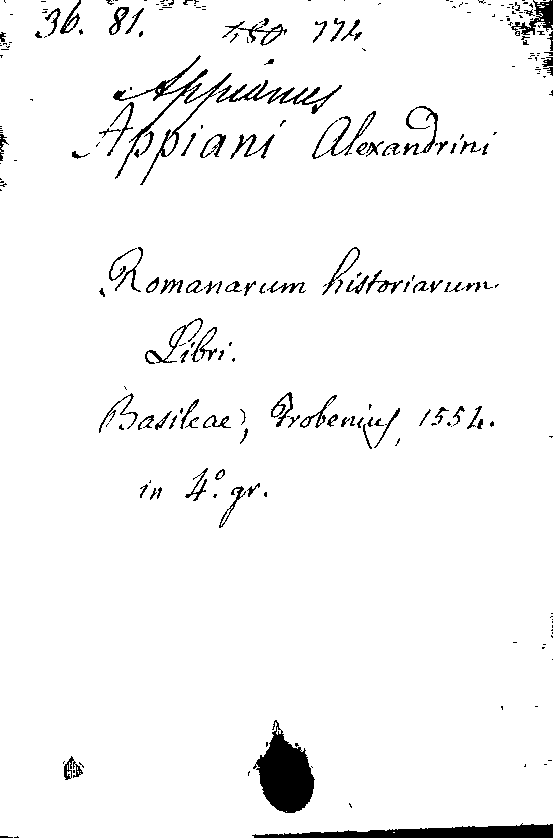 36. 81. 774
Appianus
Appiani Alexandrini
Romanarum historiarum
Libri.
Basileae, Frobenius, 1554.
in 4.° gr.